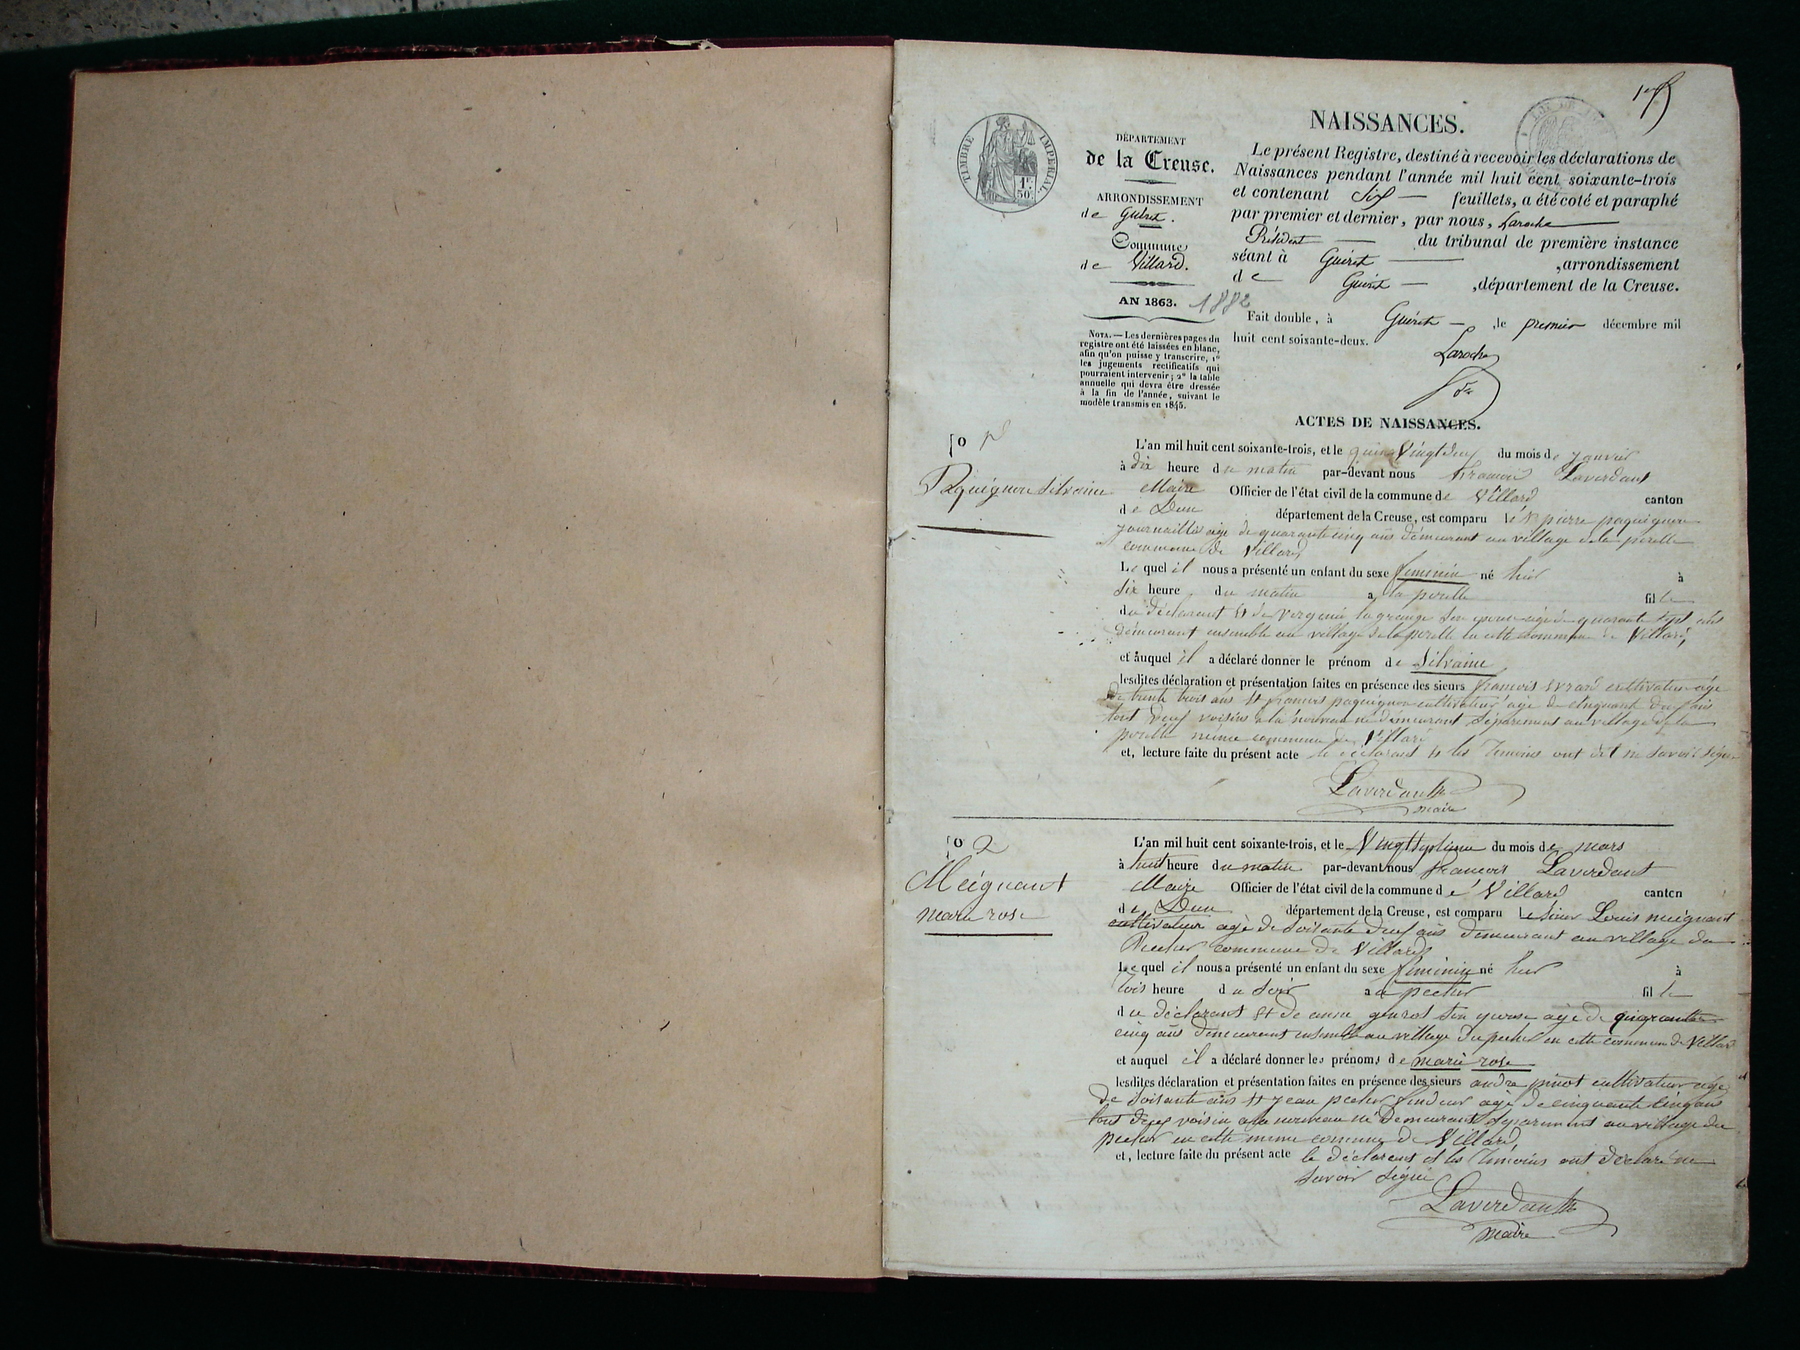 1er
NAISSANCES.
TIMBRE IMPERIAL
1F 50c
DÉPARTEMENT
de la Creuse.
ARRONDISSEMENT
de Guéret.
Commune
de Villard.
AN 1863. 1882
NOTA. — Les dernières pages du
registre ont été laissées en blanc,
afin qu'on puisse y transcrire, 1º
les jugements rectificatifs qui
pourraient intervenir; 2º la table
annuelle qui devra être dressée
à la fin de l'année, suivant le
modèle transmis en 1845.
Le présent Registre, destiné à recevoir les déclarations de
Naissances pendant l'année mil huit cent soixante-trois
et contenant Six feuillets, a été coté et paraphé
par premier et dernier, par nous, Laroche
Président du tribunal de première instance
séant à Guéret , arrondissement
de Guéret , département de la Creuse.
Fait double, à Guéret , le premier décembre mil
huit cent soixante-deux.
Laroche
ACTES DE NAISSANCES.
Paquignon Silvaine
L'an mil huit cent soixante-trois, et le Vingt deux du mois de janvier
à dix heure du matin par-devant nous François Laverdant
Maire Officier de l'état civil de la commune de Villard canton
de Dun département de la Creuse, est comparu le Sr pierre paquignon
journallier agé de quarante cinq ans demeurant au village de la
commune de Villard
Le quel il nous a présenté un enfant du sexe feminin né hier à
Six heure du matin a la fil le
du déclarant et de virginie lagrange son epouse agé de quarante sept ans
demeurant ensemble au village de la en cette commune de Villard,
et auquel il a déclaré donner le prénom de Silvaine
lesdites déclaration et présentation faites en présence des sieurs francois cultivateur age
de trente trois ans et francois paquignon cultivateur agé de cinquante deux ans
tout deux voisins a la nouveau né demeurant séparement au village de la
meme commune de Villard
et, lecture faite du présent acte le déclarant et les Temoins ont dit ne savoir signer
Laverdant
maire
º 2
Meignant
marie rose
L'an mil huit cent soixante-trois, et le Vingt septieme du mois de mars
à huit heure du matin par-devant nous francois Laverdant
Maire Officier de l'état civil de la commune de Villard canton
de Dun département de la Creuse, est comparu le sieur Louis meignant
cultivateur agé de soisante deux ans demeurant au village du
commune de Villard
Le quel il nous a présenté un enfant du sexe feminin né hier à
trois heure du soir a fil le
du déclarant et de anne son epouse agé de quarante
cinq ans demeurant ensemble au village du en cette commune de Villard
et auquel il a déclaré donner les prénoms de marie rose
lesdites déclaration et présentation faites en présence des sieurs andre pinot cultivateur agé
de soisante ans et jean agé de cinquante cinq ans
tout deux voisin a la nouveau né demeurant séparement au village du
en cette meme commune de Villard
et, lecture faite du présent acte le déclarant et les Témoins ont déclaré ne
savoir signé
Laverdant
maire